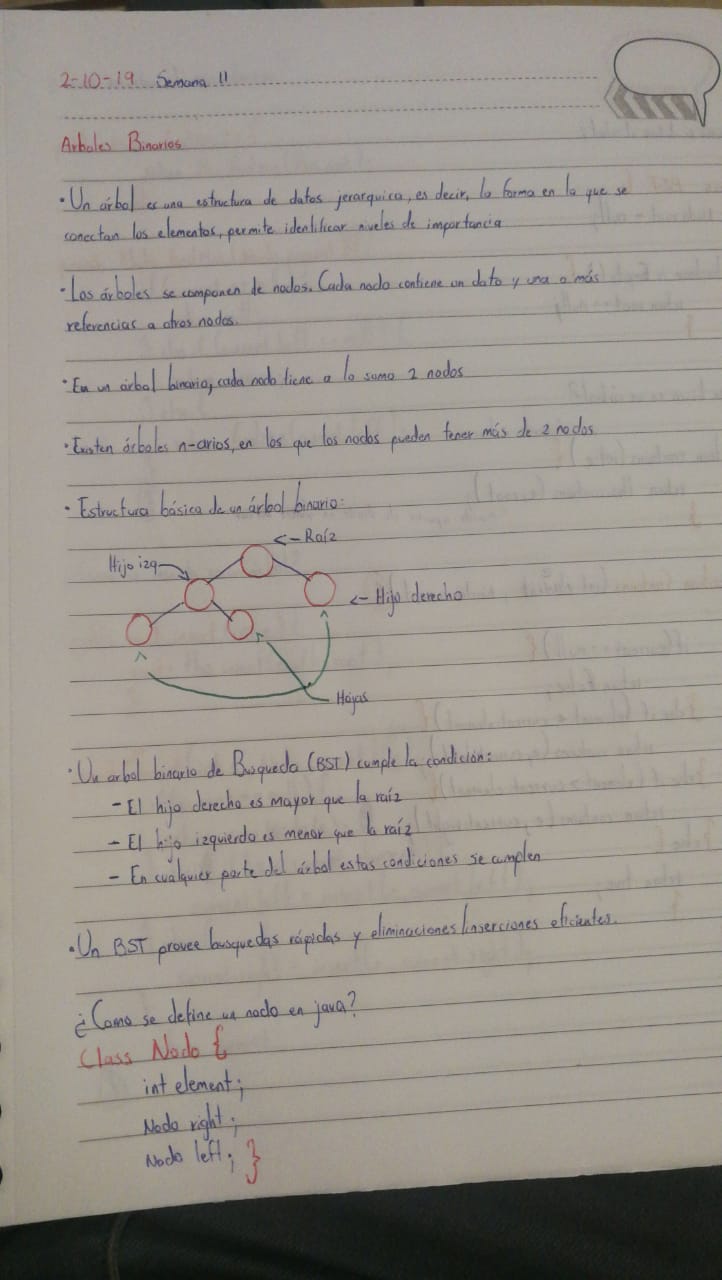 2-10-19 Semana 11
Arboles Binarios
• Un árbol es una estructura de datos jerarquica, es decir, la forma en la que se
conectan los elementos, permite identificar niveles de importancia
• Los árboles se componen de nodos. Cada nodo contiene un dato y una o más
referencias a otros nodos.
• En un árbol binario, cada nodo tiene a lo sumo 2 nodos
• Existen árboles n-arios, en los que los nodos pueden tener más de 2 nodos
• Estructura básica de un árbol binario:
<- Raíz
Hijo izq
<- Hijo derecho
Hojas
• Un arbol binario de Busqueda (BST) cumple la condición:
- El hijo derecho es mayor que la raíz
- El hijo izquierdo es menor que la raíz
- En cualquier parte del árbol estas condiciones se cumplen
• Un BST provee busquedas rápidas y eliminaciones/inserciones eficientes.
¿Como se define un nodo en java?
Class Nodo {
int element;
Nodo right;
Nodo left; }